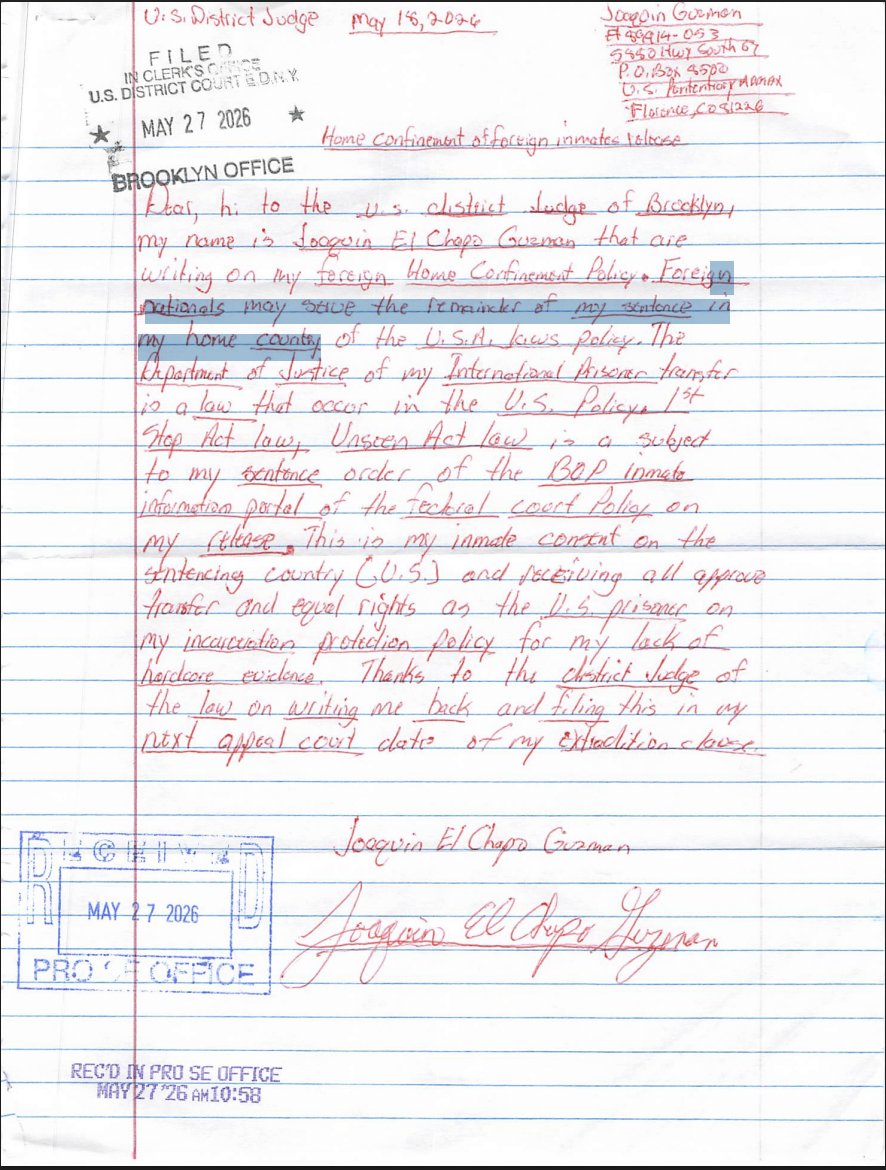 U.S. District Judge May 18, 2026
Joaquin Guzman
# 89914-053
5880 Hwy South 67
P.O. Box 8500
U.S. Penitentiary ADMAX
Florence, CO 81226
FILED
IN CLERK'S OFFICE
U.S. DISTRICT COURT E.D.N.Y.
★ MAY 27 2026 ★
BROOKLYN OFFICE
Home confinement of foreign inmates release
Dear, hi to the U.S. district Judge of Brooklyn,
my name is Joaquin El Chapo Guzman that are
writing on my foreign Home Confinement Policy. Foreign
nationals may serve the remainder of my sentence in
my home country of the U.S.A. laws policy. The
Department of Justice of my International Prisoner transfer
is a law that occur in the U.S. Policy. 1st
Stop Act law, Unseen Act law is a subject
to my sentence order of the BOP inmate
information portal of the federal court Policy on
my release. This is my inmate consent on the
sentencing country (U.S.) and receiving all approve
transfer and equal rights as the U.S. prisoner on
my incarceration protection policy for my lack of
hardcore evidence. Thanks to the district Judge of
the law on writing me back and filing this in my
next appeal court date of my extradition clause.
Joaquin El Chapo Guzman
Joaquin El Chapo Guzman
RECEIVED
MAY 27 2026
PRO SE OFFICE
REC'D IN PRO SE OFFICE
MAY 27 '26 AM10:58